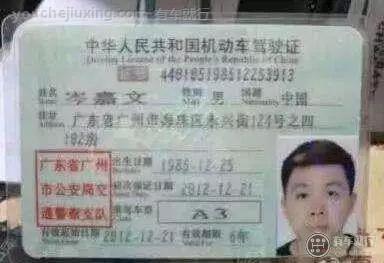 youchejiuxing.com 有车就行
中华人民共和国机动车驾驶证
Driving License of the People's Republic of China
440105198512253913
姓名 岑嘉文 性别 男 国籍 中国
广东省广州市海珠区永兴街121号之四
102房
广东省广州 出生日期 1985-12-25
市公安局交 初次领证日期 2012-12-21
通警察支队 准驾车型 A3
有效起始日期 2012-12-21 有效期限 6年
有车就行